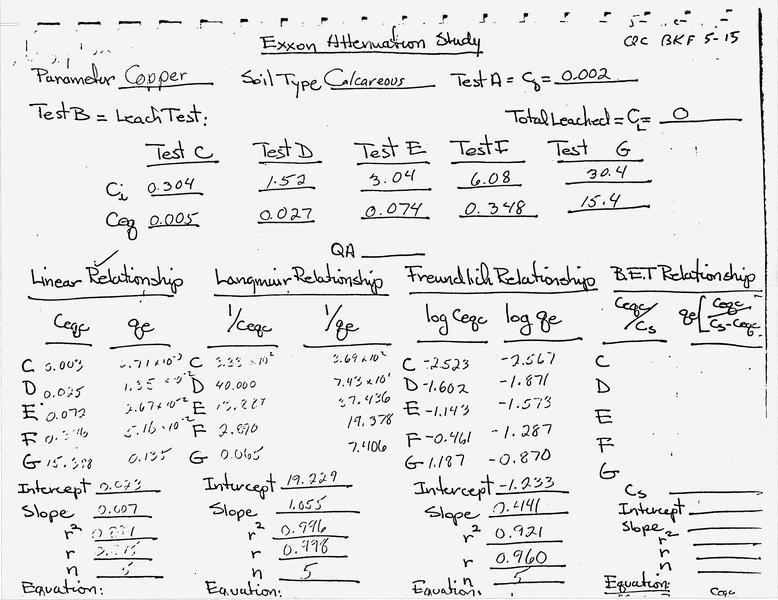 Exxon Attenuation Study
QC BKF 5-15
Parameter Copper Soil Type Calcareous Test A = Cq = 0.002
Test B = Leach Test: Total Leached = CL = 0
Test C Test D Test E Test F Test G
Ci 0.304 1.52 3.04 6.08 30.4
Ceq 0.005 0.027 0.074 0.348 15.4
QA
Linear Relationship Langmuir Relationship Freundlich Relationship B.E.T Relationship
Ceqc qe 1/Ceqc 1/qe log Ceqc log qe Ceqc/Cs qe[Ceqc/Cs-Ceqc
C 0.003 C 3.33 x10² 3.69 x10² C -2.523 -2.567 C
D 0.025 1.35 x10⁻² D 40.000 7.43 x10¹ D -1.602 -1.871 D
E 0.072 2.67 x10⁻² E 37.436 E -1.143 -1.573 E
F F 2.890 19.378 F -0.461 -1.287 F
G 15.398 0.135 G 0.065 7.406 G 1.187 -0.870 G
Intercept 0.023 Intercept 19.229 Intercept -1.233 Cs
Slope 0.007 Slope 1.055 Slope 0.441 Intercept
r² r² 0.996 r² 0.921 Slope
r r 0.998 r 0.960 r²
n 5 n 5 n 5 r
n
Equation: Equation: Equation: Equation:
Ceqc